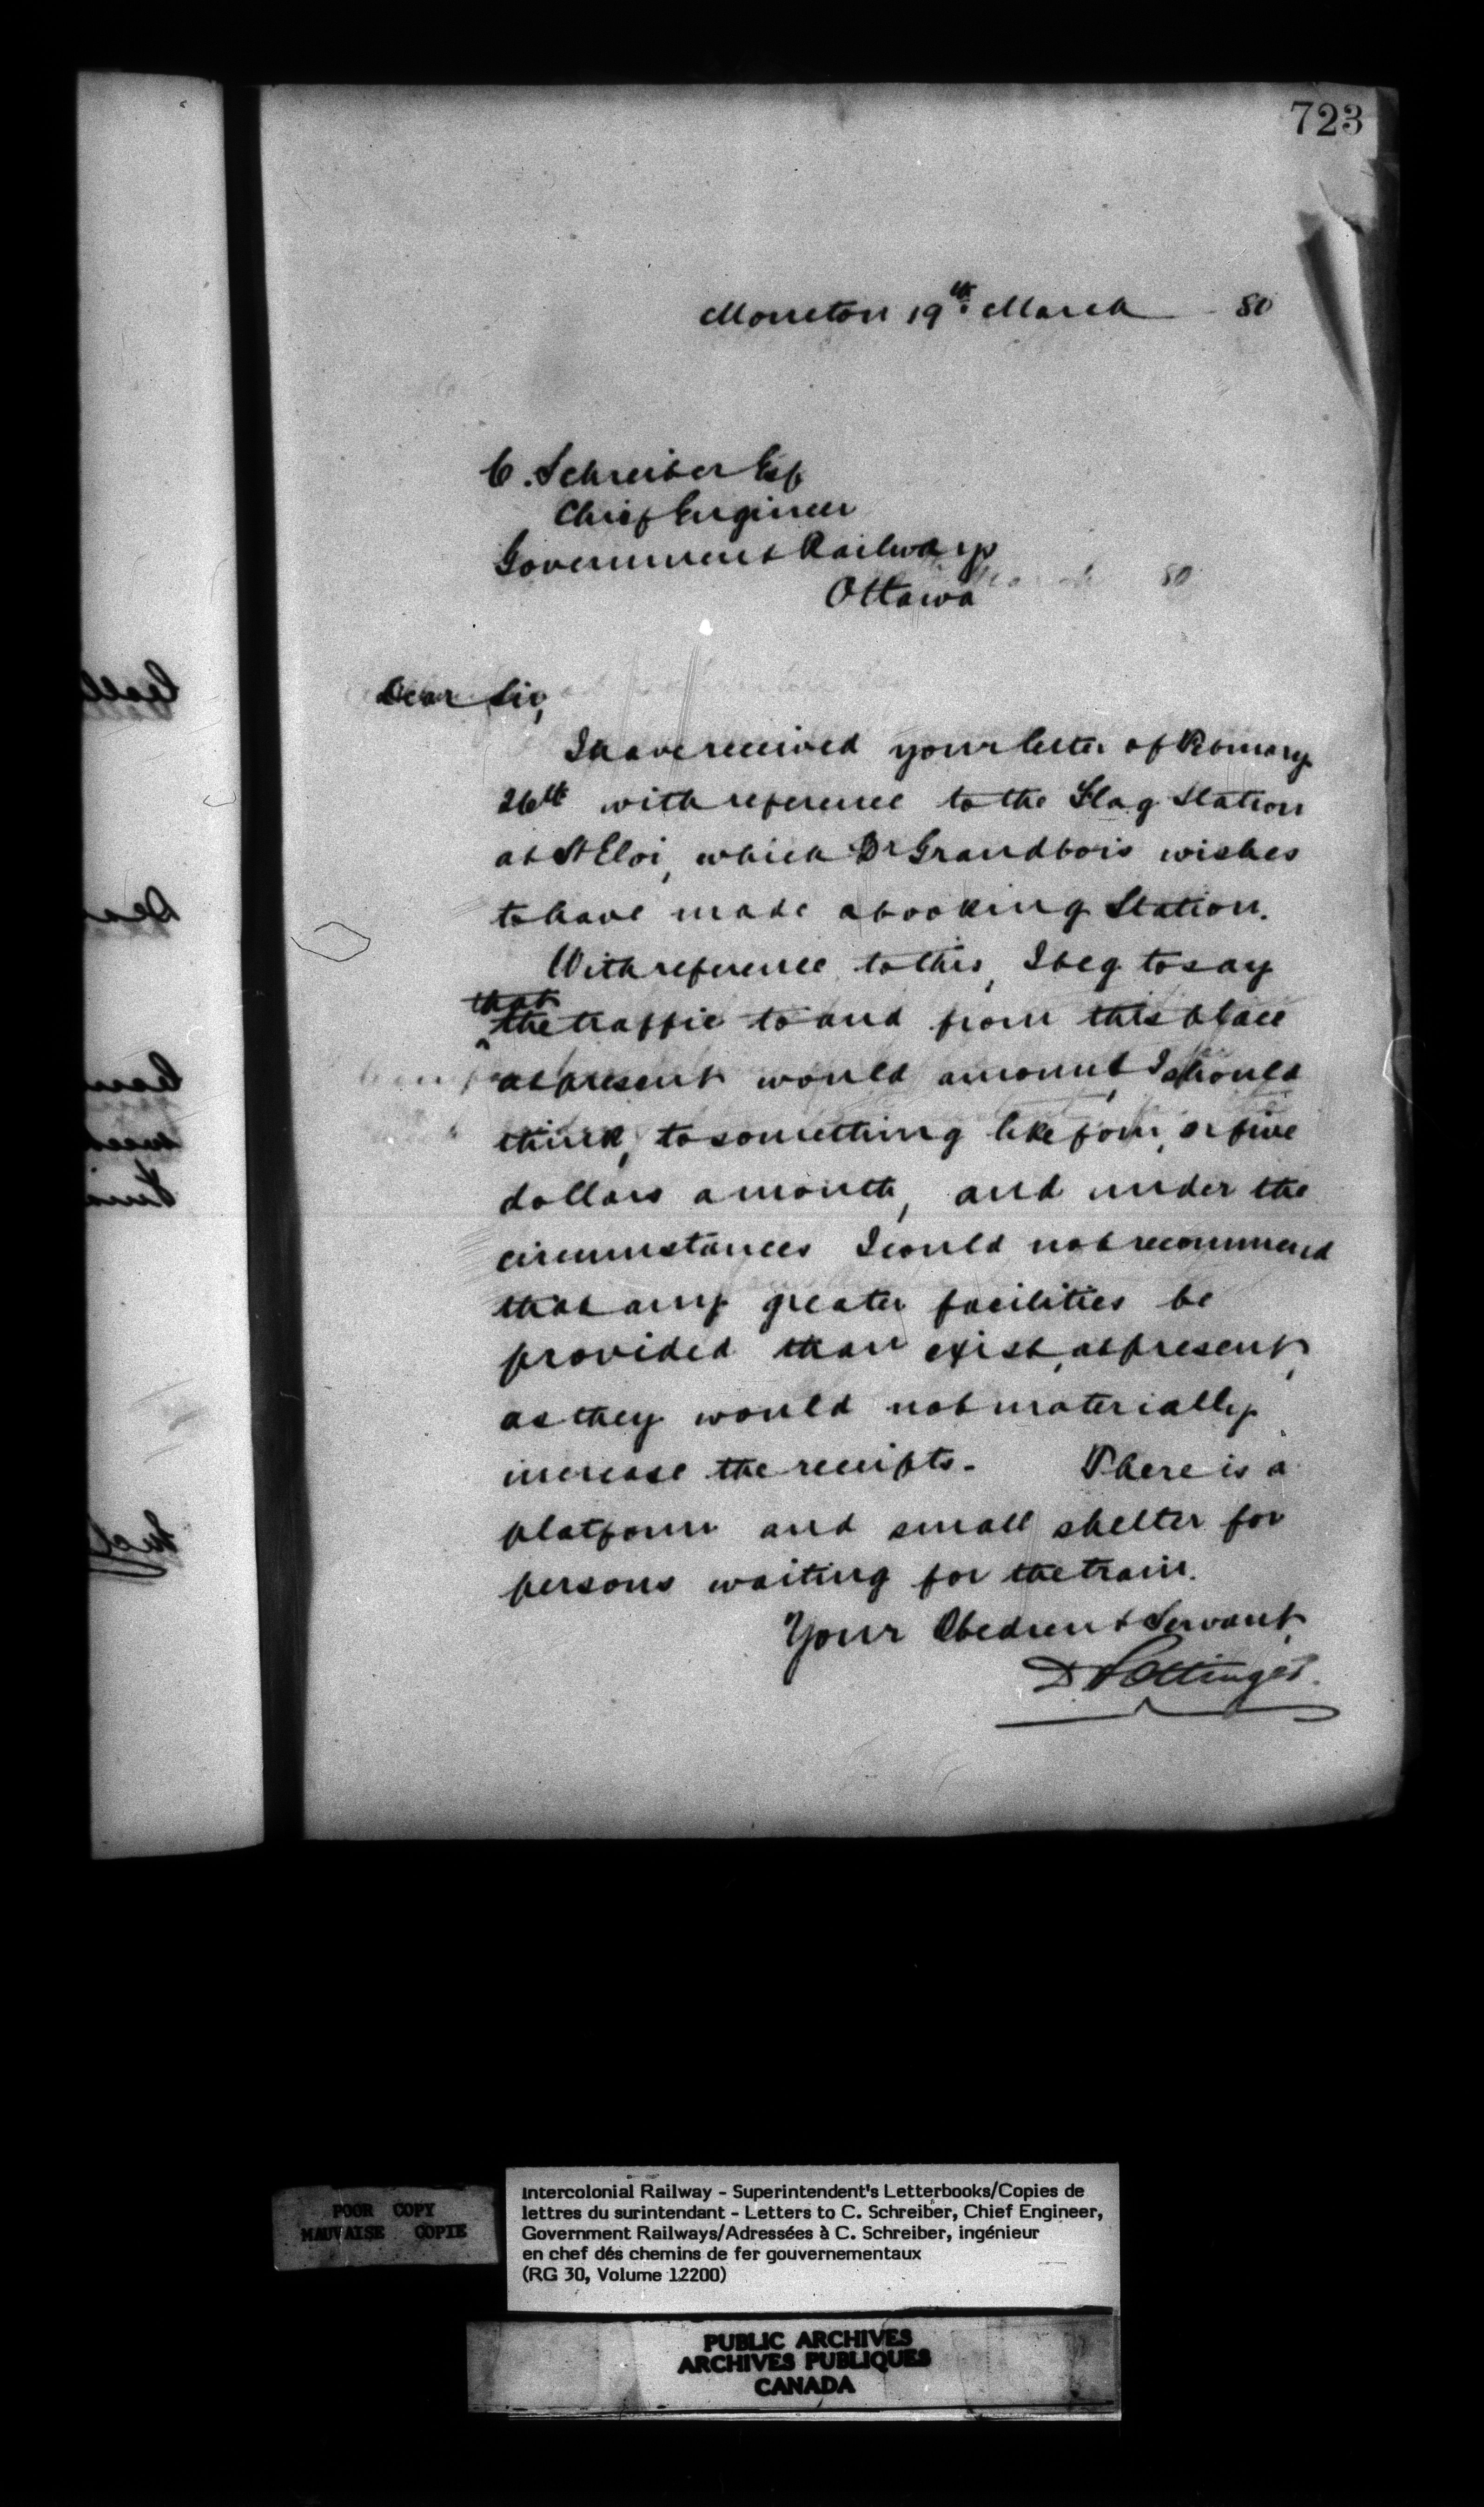 723
Moncton 19th March 80
C. Schreiber Esq
Chief Engineer
Government Railways
Ottawa
Dear Sir,
I have received your letter of February
26th with reference to the Flag Station
at St Eloi, which Dr Grandbois wishes
to have made a booking Station.
With reference to this, I beg to say
that
the traffic to and from this place
at present would amount, I should
think, to something like four, or five
dollars a month, and under the
circumstances I could not recommend
that any greater facilities be
provided than exist, at present,
as they would not materially
increase the receipts. There is a
platform and small shelter for
persons waiting for the train.
Your Obedient Servant,
D Pottinger.
POOR COPY
MAUVAISE COPIE
Intercolonial Railway - Superintendent's Letterbooks/Copies de
lettres du surintendant - Letters to C. Schreiber, Chief Engineer,
Government Railways/Adressées à C. Schreiber, ingénieur
en chef dés chemins de fer gouvernementaux
(RG 30, Volume 12200)
PUBLIC ARCHIVES
ARCHIVES PUBLIQUES
CANADA